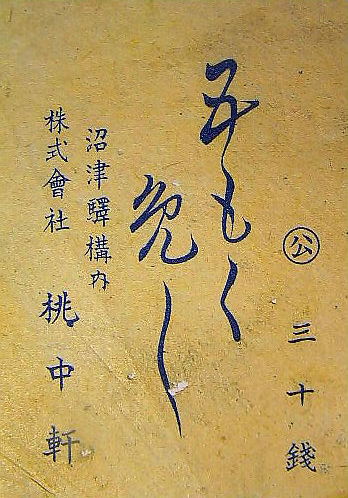 公 三十錢
五もく
免し
沼津驛構内
株式會社 桃中軒